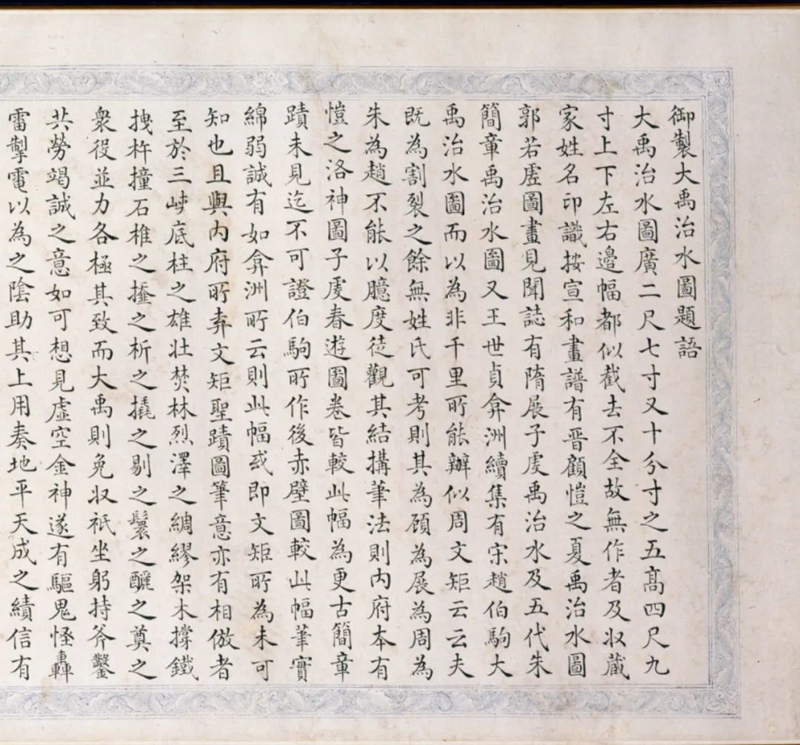 御製大禹治水圖題語
大禹治水圖廣二尺七寸又十分寸之五髙四尺九
寸上下左右邉幅都似截去不全故無作者及收藏
家姓名印識按宣和畫譜有晋顧愷之夏禹治水圖
郭若虗圖畫見聞誌有隋展子虔禹治水及五代朱
簡章禹治水圖又王世貞弇洲續集有宋趙伯駒大
禹治水圖而以為非千里所能辦似周文矩云云夫
既為割裂之餘無姓氏可考則其為顧為展為周為
朱為趙不能以臆度徒觀其結搆筆法則内府本有
愷之洛神圖子虔春遊圖卷皆較此幅為更古簡章
蹟未見迄不可證伯駒所作後赤壁圖較此幅筆實
綿弱誠有如弇洲所云則此幅或即文矩所為未可
知也且與内府所弆文矩聖蹟圖筆意亦有相倣者
至於三峡底柱之雄壮焚林烈澤之綢繆架木撐鐵
拽杵撞石椎之搥之析之撬之剔之鬟之釃之奠之
衆役並力各極其致而大禹則免収袛坐躬持斧鑿
共勞竭誠之意如可想見虚空金神遂有驅鬼怪轟
雷掣電以為之陰助其上用奏地平天成之績信有